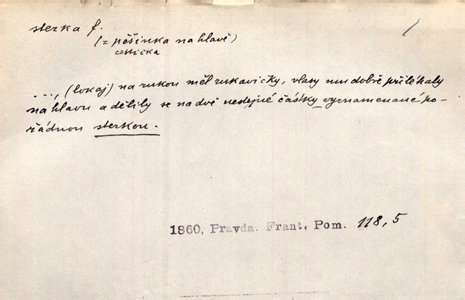 sterka f.
(= pěšinka na hlavě)
cestička
..., (lokaj) na rukou měl rukavičky, vlasy mu dobře přiléhaly
na hlavu a dělily se na dvě nestejné částky vyznamenané po-
řádnou sterkou.
1860, Pravda. Frant. Pom. 118, 5